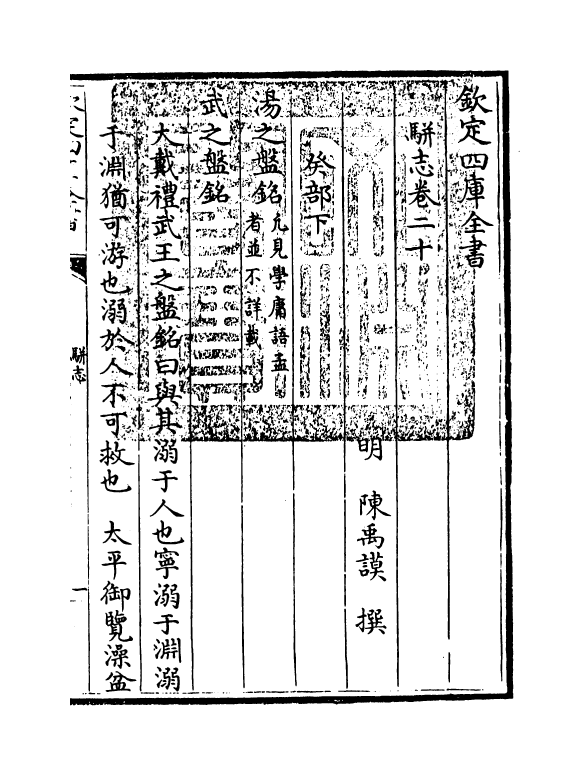 欽定四庫全書
駢志卷二十
明　陳禹謨　撰
癸部下
湯之盤銘凡見學庸語孟者並不詳載
武之盤銘
大戴禮武王之盤銘曰與其溺于人也寧溺于淵溺
于淵猶可游也溺於人不可救也　太平御覽澡盆
駢志
一